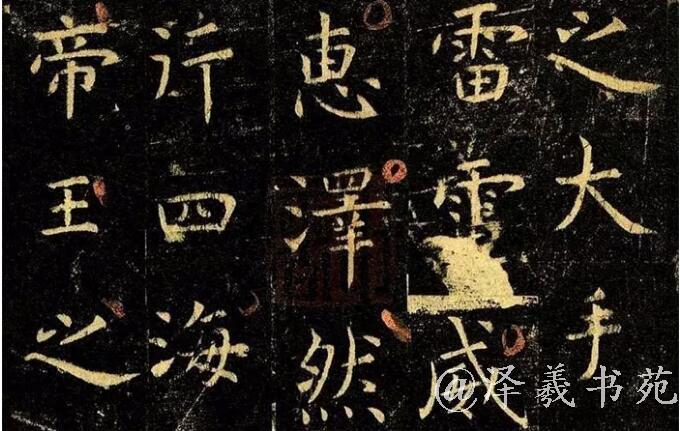 之大手
雷威
惠澤然
行四海
帝王之
@泽羲书苑